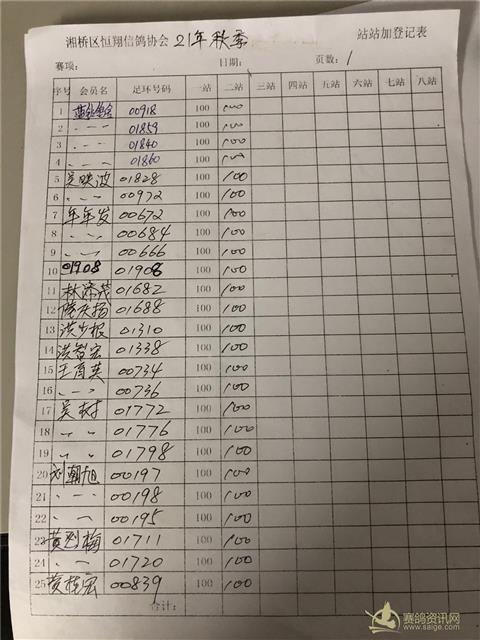 湘桥区恒翔信鸽协会 21年秋季 站站加登记表
赛项: 日期: 页数: 1
序号 会员名 足环号码 一站 二站 三站 四站 五站 六站 七站 八站
1 00918 100 100
2 〃 01859 100 100
3 〃 01840 100 100
4 〃 01860 100 100
5 吴映波 01828 100 100
6 〃 00972 100 100
7 年年发 00672 100 100
8 〃 00684 100 100
9 〃 00666 100 100
10 01908 01908 100 100
11 林沛茂 01682 100 100
12 01688 100 100
13 洪少根 01310 100 100
14 洪智宏 01338 100 100
15 王育英 00734 100 100
16 〃 00736 100 100
17 吴树 01772 100 100
18 〃 01776 100 100
19 〃 01798 100 100
20 刘朝旭 00197 100 100
21 〃 00198 100 100
22 〃 00195 100 100
23 黄烈梅 01711 100 100
24 〃 01720 100 100
25 黄桂宏 00839 100 100
合计:
赛鸽资讯网
www.saige.com